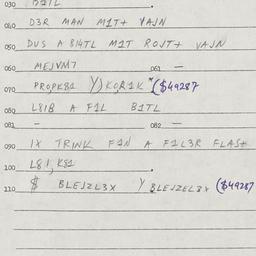 030 BIIL
040 D3R MAN M1T+ VAJN
050 DUS A BI4TL M1T ROJT+ VAJN
060 MEJVM7 061 —
070 PROPK81 Y) KOR1K *($49287
080 L8IB A F1L B1TL
081 — 082 —
090 IX TRINK F1N A F1L3R FLAS+
100 L81, K81
110 $ BLEJZL3X Y BLEJZEL3X ($49287